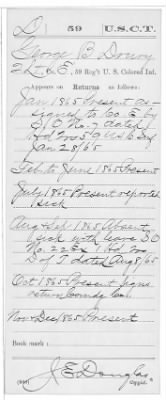 D 59 U.S.C.T.
George B Dowry
2 L., Co. E, 59 Reg't U. S. Colored Inf.
Appears on Returns as follows:
Jan 1865 Present as-
signed to Co E by
S.O. No. 7 dated
Hd
Jan 28/65
Feb to June 1865 Present
July 1865 Present reported
sick
Aug & Sep 1865 Absent
sick with leave 30
D of T dated Aug 8/65
Oct 1865 Present signs
return Comdg Co.
Nov Dec 1865 Present
Book mark:
J E Douglas
Copyist.